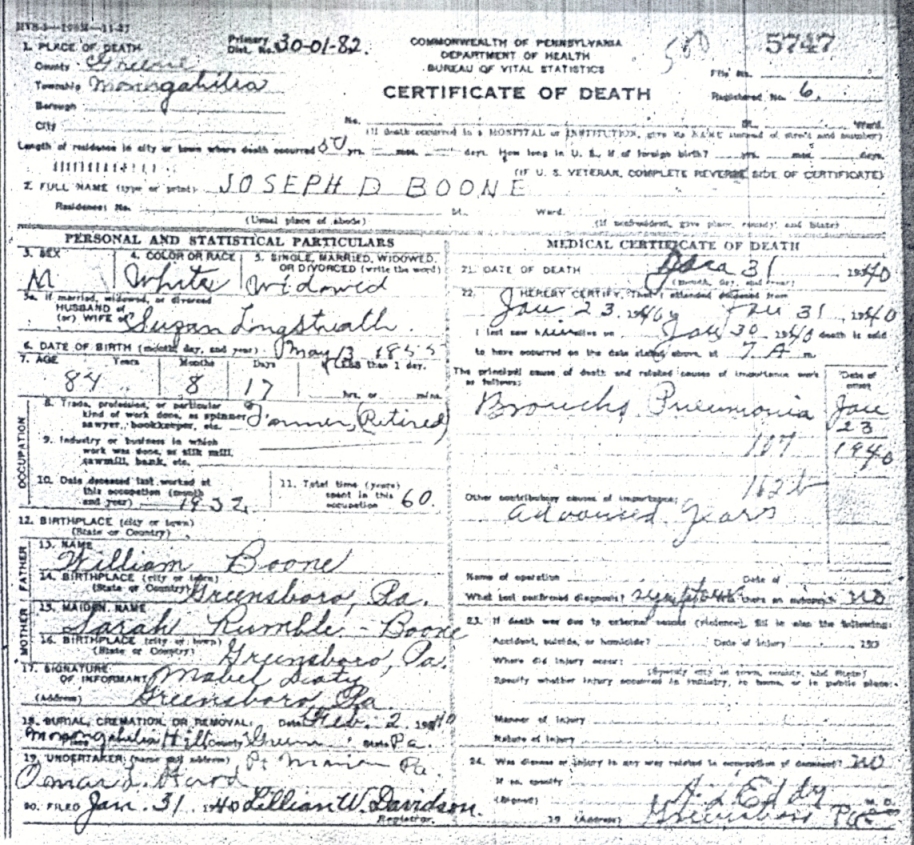 HVS-5-
Primary Dist. No. 30-01-82.
COMMONWEALTH OF PENNSYLVANIA
DEPARTMENT OF HEALTH
BUREAU OF VITAL STATISTICS
CERTIFICATE OF DEATH
5747
File No.
Registered No. 6.
1. PLACE OF DEATH
County Greene
Township Monongahilia
Borough
City
No. St. Ward.
(If death occurred in a HOSPITAL or INSTITUTION, give its NAME instead of street and number)
Length of residence in city or town where death occurred yrs. mos. days. How long in U. S., if of foreign birth? yrs. mos. days.
(IF U. S. VETERAN, COMPLETE REVERSE SIDE OF CERTIFICATE)
2. FULL NAME (type or print) JOSEPH D BOONE
Residence: No. St. Ward.
(Usual place of abode) (If nonresident, give place, county, and State)
PERSONAL AND STATISTICAL PARTICULARS
3. SEX M
4. COLOR OR RACE White
5. SINGLE, MARRIED, WIDOWED, OR DIVORCED (write the word) Widowed
5a. If married, widowed, or divorced
HUSBAND of
(or) WIFE of Suzan
6. DATE OF BIRTH (month, day, and year) May 13 1855
7. AGE Years Months Days If less than 1 day,
84 8 17 hrs. or mins.
OCCUPATION
8. Trade, profession, or particular
kind of work done, as spinner,
sawyer, bookkeeper, etc. Farmer (Retired)
9. Industry or business in which
work was done, as silk mill,
sawmill, bank, etc.
10. Date deceased last worked at
this occupation (month
and year) 1932
11. Total time (years)
spent in this
occupation 60.
12. BIRTHPLACE (city or town)
(State or Country)
FATHER
13. NAME William Boone
14. BIRTHPLACE (city or town)
(State or Country) Greensboro, Pa.
MOTHER
15. MAIDEN NAME Sarah Rumble - Boone
16. BIRTHPLACE (city or town)
(State or Country) Greensboro, Pa.
17. SIGNATURE
OF INFORMANT Mabel
(Address) Greensboro, Pa.
18. BURIAL, CREMATION, OR REMOVAL: Date Feb. 2, 1940
Place Monongahilia Hill County Green State Pa.
19. UNDERTAKER (name and address) Pt Marion Pa
Omar L.
20. FILED Jan. 31 1940 Lillian W. Davidson.
Registrar.
MEDICAL CERTIFICATE OF DEATH
21. DATE OF DEATH 31 1940
(month, day, and year)
22. I HEREBY CERTIFY, That I attended deceased from
Jan 23 1940, 31, 1940
I last saw him alive on Jan 30 1940 death is said
to have occurred on the date stated above, at 7 A m.
The principal cause of death and related causes of importance were
as follows:
Date of onset
Broncho Pneumonia Jan
23
107 1940
162b
Other contributory causes of importance:
Advanced Years
Name of operation Date of
What test confirmed diagnosis? symptoms Was there an autopsy? no
23. If death was due to external causes (violence), fill in also the following:
Accident, suicide, or homicide? Date of injury 193
Where did injury occur?
(Specify city or town, county, and State)
Specify whether injury occurred in industry, in home, or in public place:
Manner of injury
Nature of injury
24. Was disease or injury in any way related to occupation of deceased? no
If so, specify
(Signed) A. L. Eddy M. D.
19 (Address) Greensboro Pa